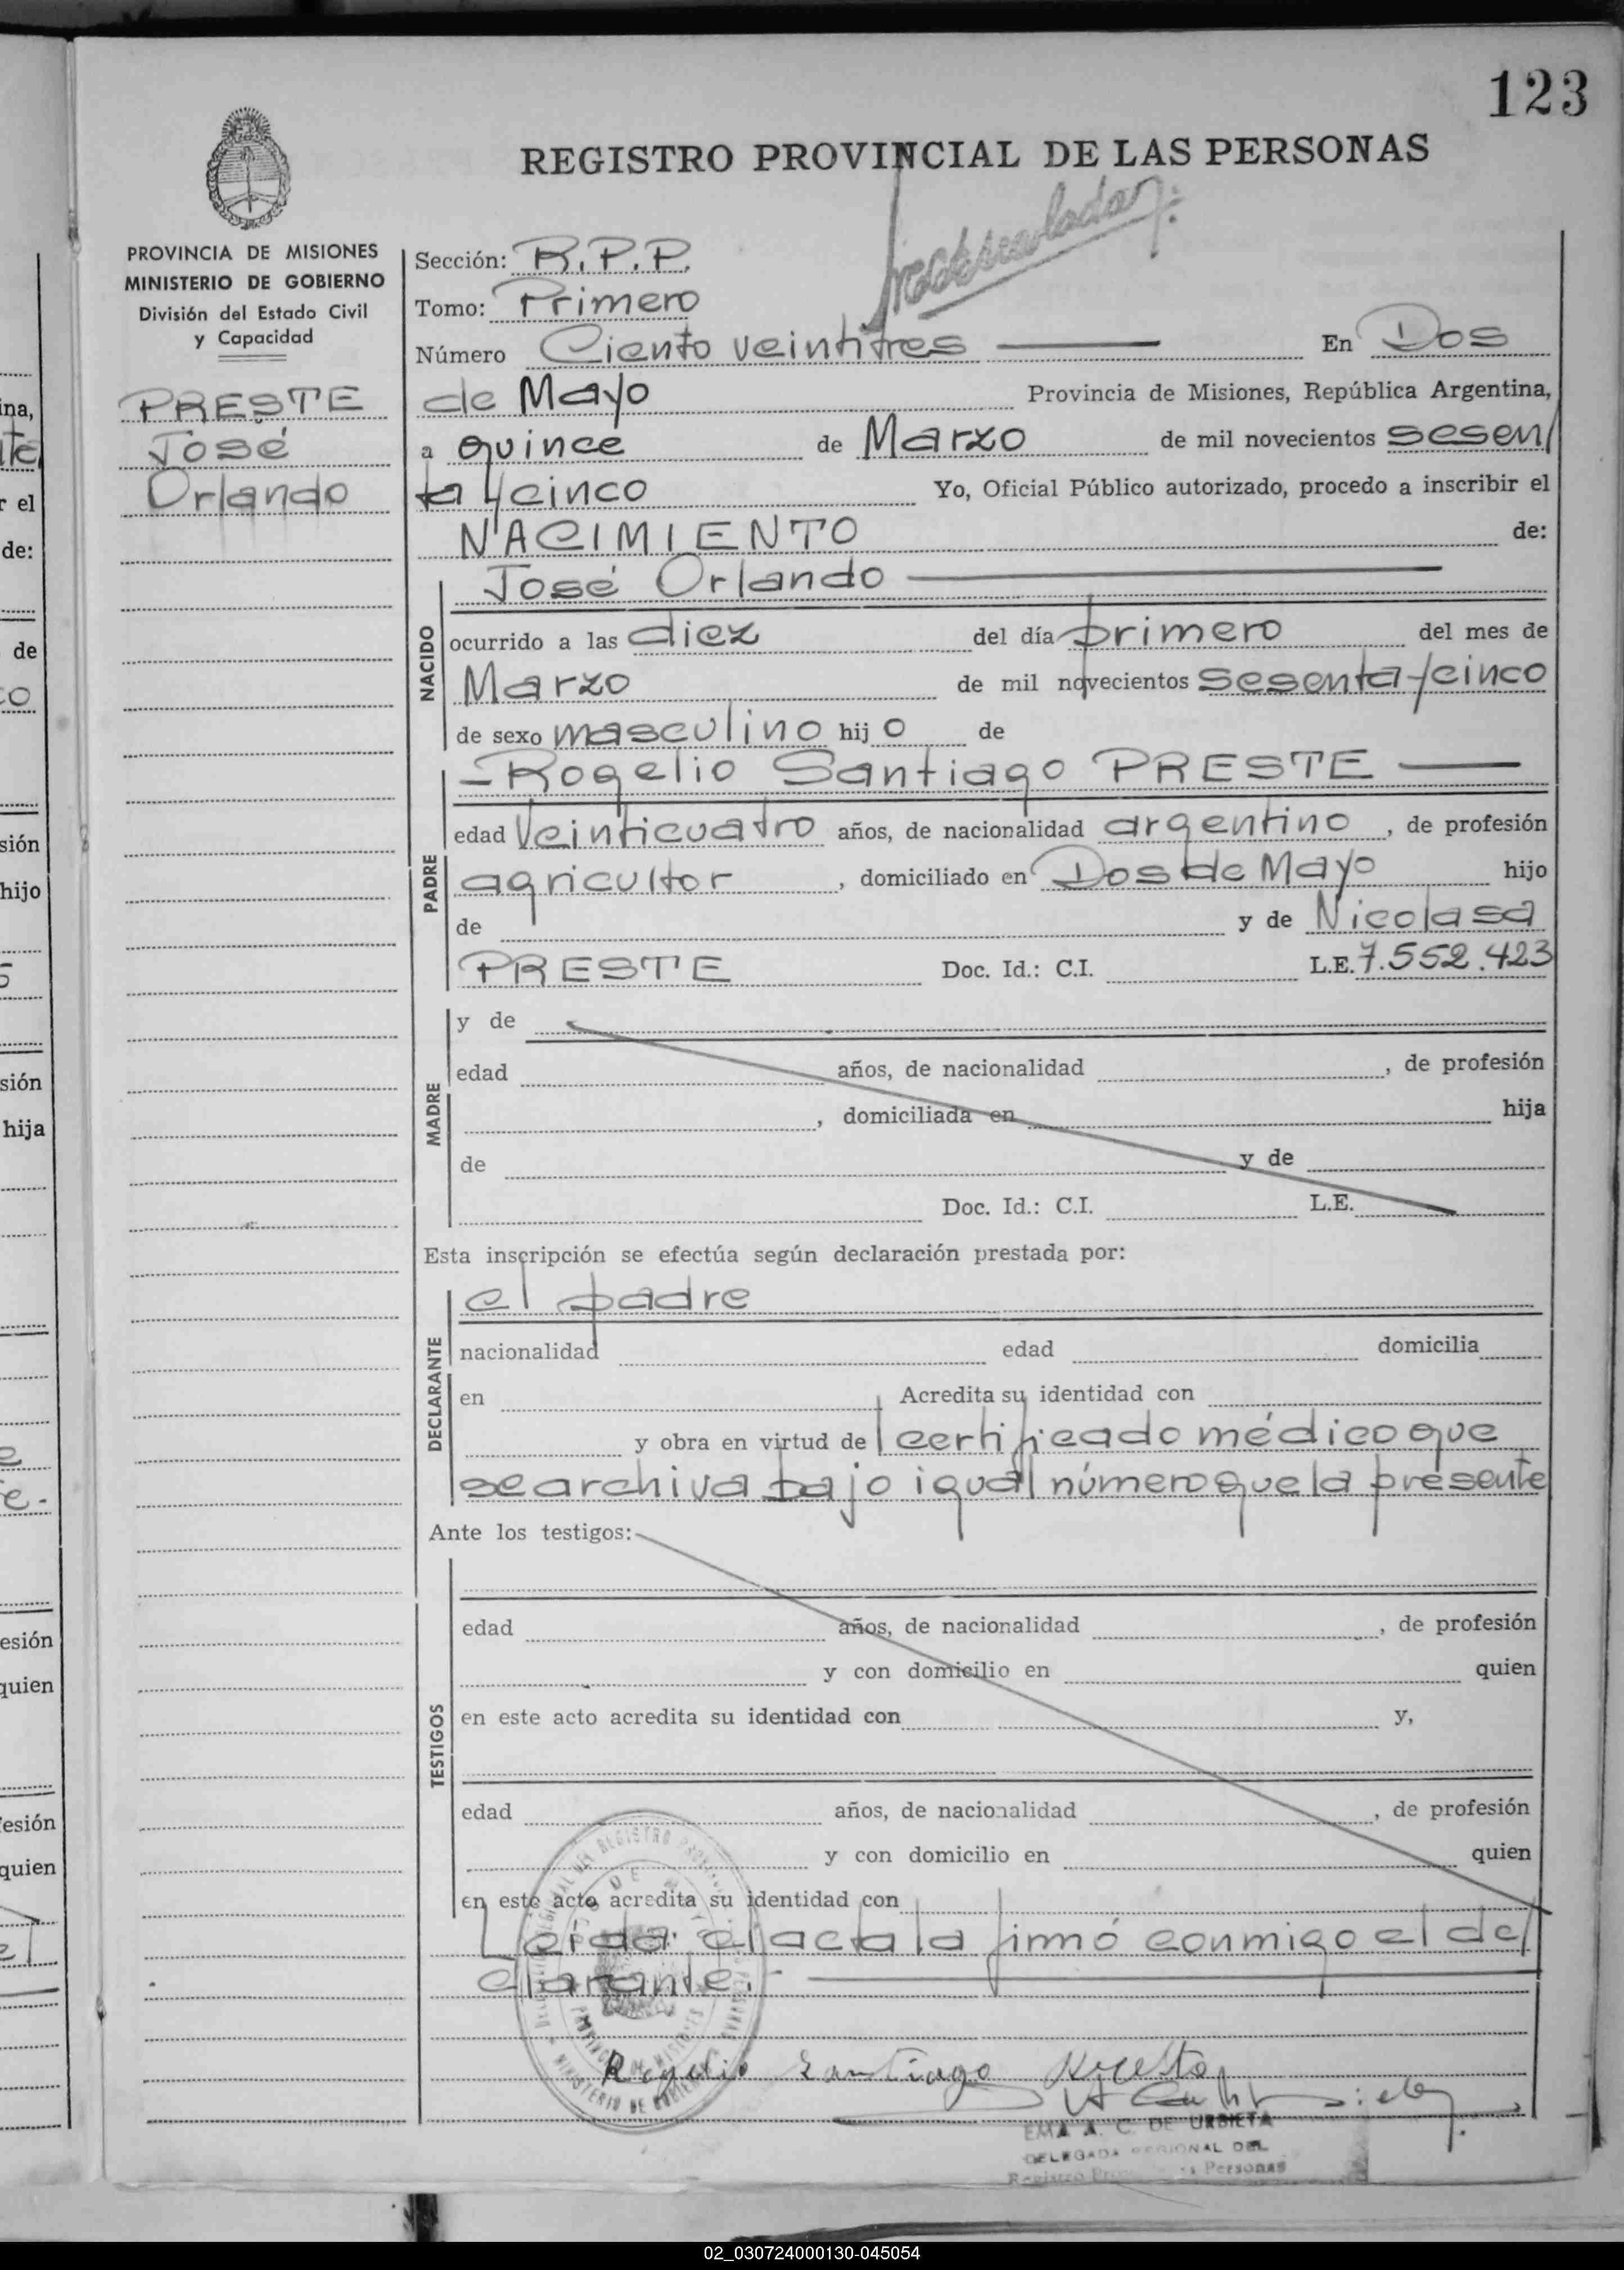 123
REGISTRO PROVINCIAL DE LAS PERSONAS
PROVINCIA DE MISIONES
MINISTERIO DE GOBIERNO
División del Estado Civil
y Capacidad
PRESTE
José
Orlando
Sección: R.P.P.
Tomo: Primero
Número Ciento veintitres En Dos
de Mayo Provincia de Misiones, República Argentina,
a quince de Marzo de mil novecientos sesen/
ta y cinco Yo, Oficial Público autorizado, procedo a inscribir el
NACIMIENTO de:
José Orlando
NACIDO
ocurrido a las diez del día primero del mes de
Marzo de mil novecientos sesenta y cinco
de sexo masculino hijo de
PADRE
Rogelio Santiago PRESTE
edad veinticuatro años, de nacionalidad argentino, de profesión
agricultor, domiciliado en Dos de Mayo hijo
de y de Nicolasa
PRESTE Doc. Id.: C.I. L.E. 7.552.423
MADRE
y de
edad años, de nacionalidad , de profesión
, domiciliada en hija
de y de
Doc. Id.: C.I. L.E.
Esta inscripción se efectúa según declaración prestada por:
DECLARANTE
el padre
nacionalidad edad domicilia
en Acredita su identidad con
y obra en virtud de certificado médico que
se archiva bajo igual número que la presente
Ante los testigos:
TESTIGOS
edad años, de nacionalidad , de profesión
y con domicilio en quien
en este acto acredita su identidad con y,
edad años, de nacionalidad , de profesión
y con domicilio en quien
en este acto acredita su identidad con
Leida el acta la firmó conmigo el de/
clarante.
Rogelio Santiago
EMA A. C. DE URBIETA
DELEGADA REGIONAL DEL
Registro Personas
02_030724000130-045054